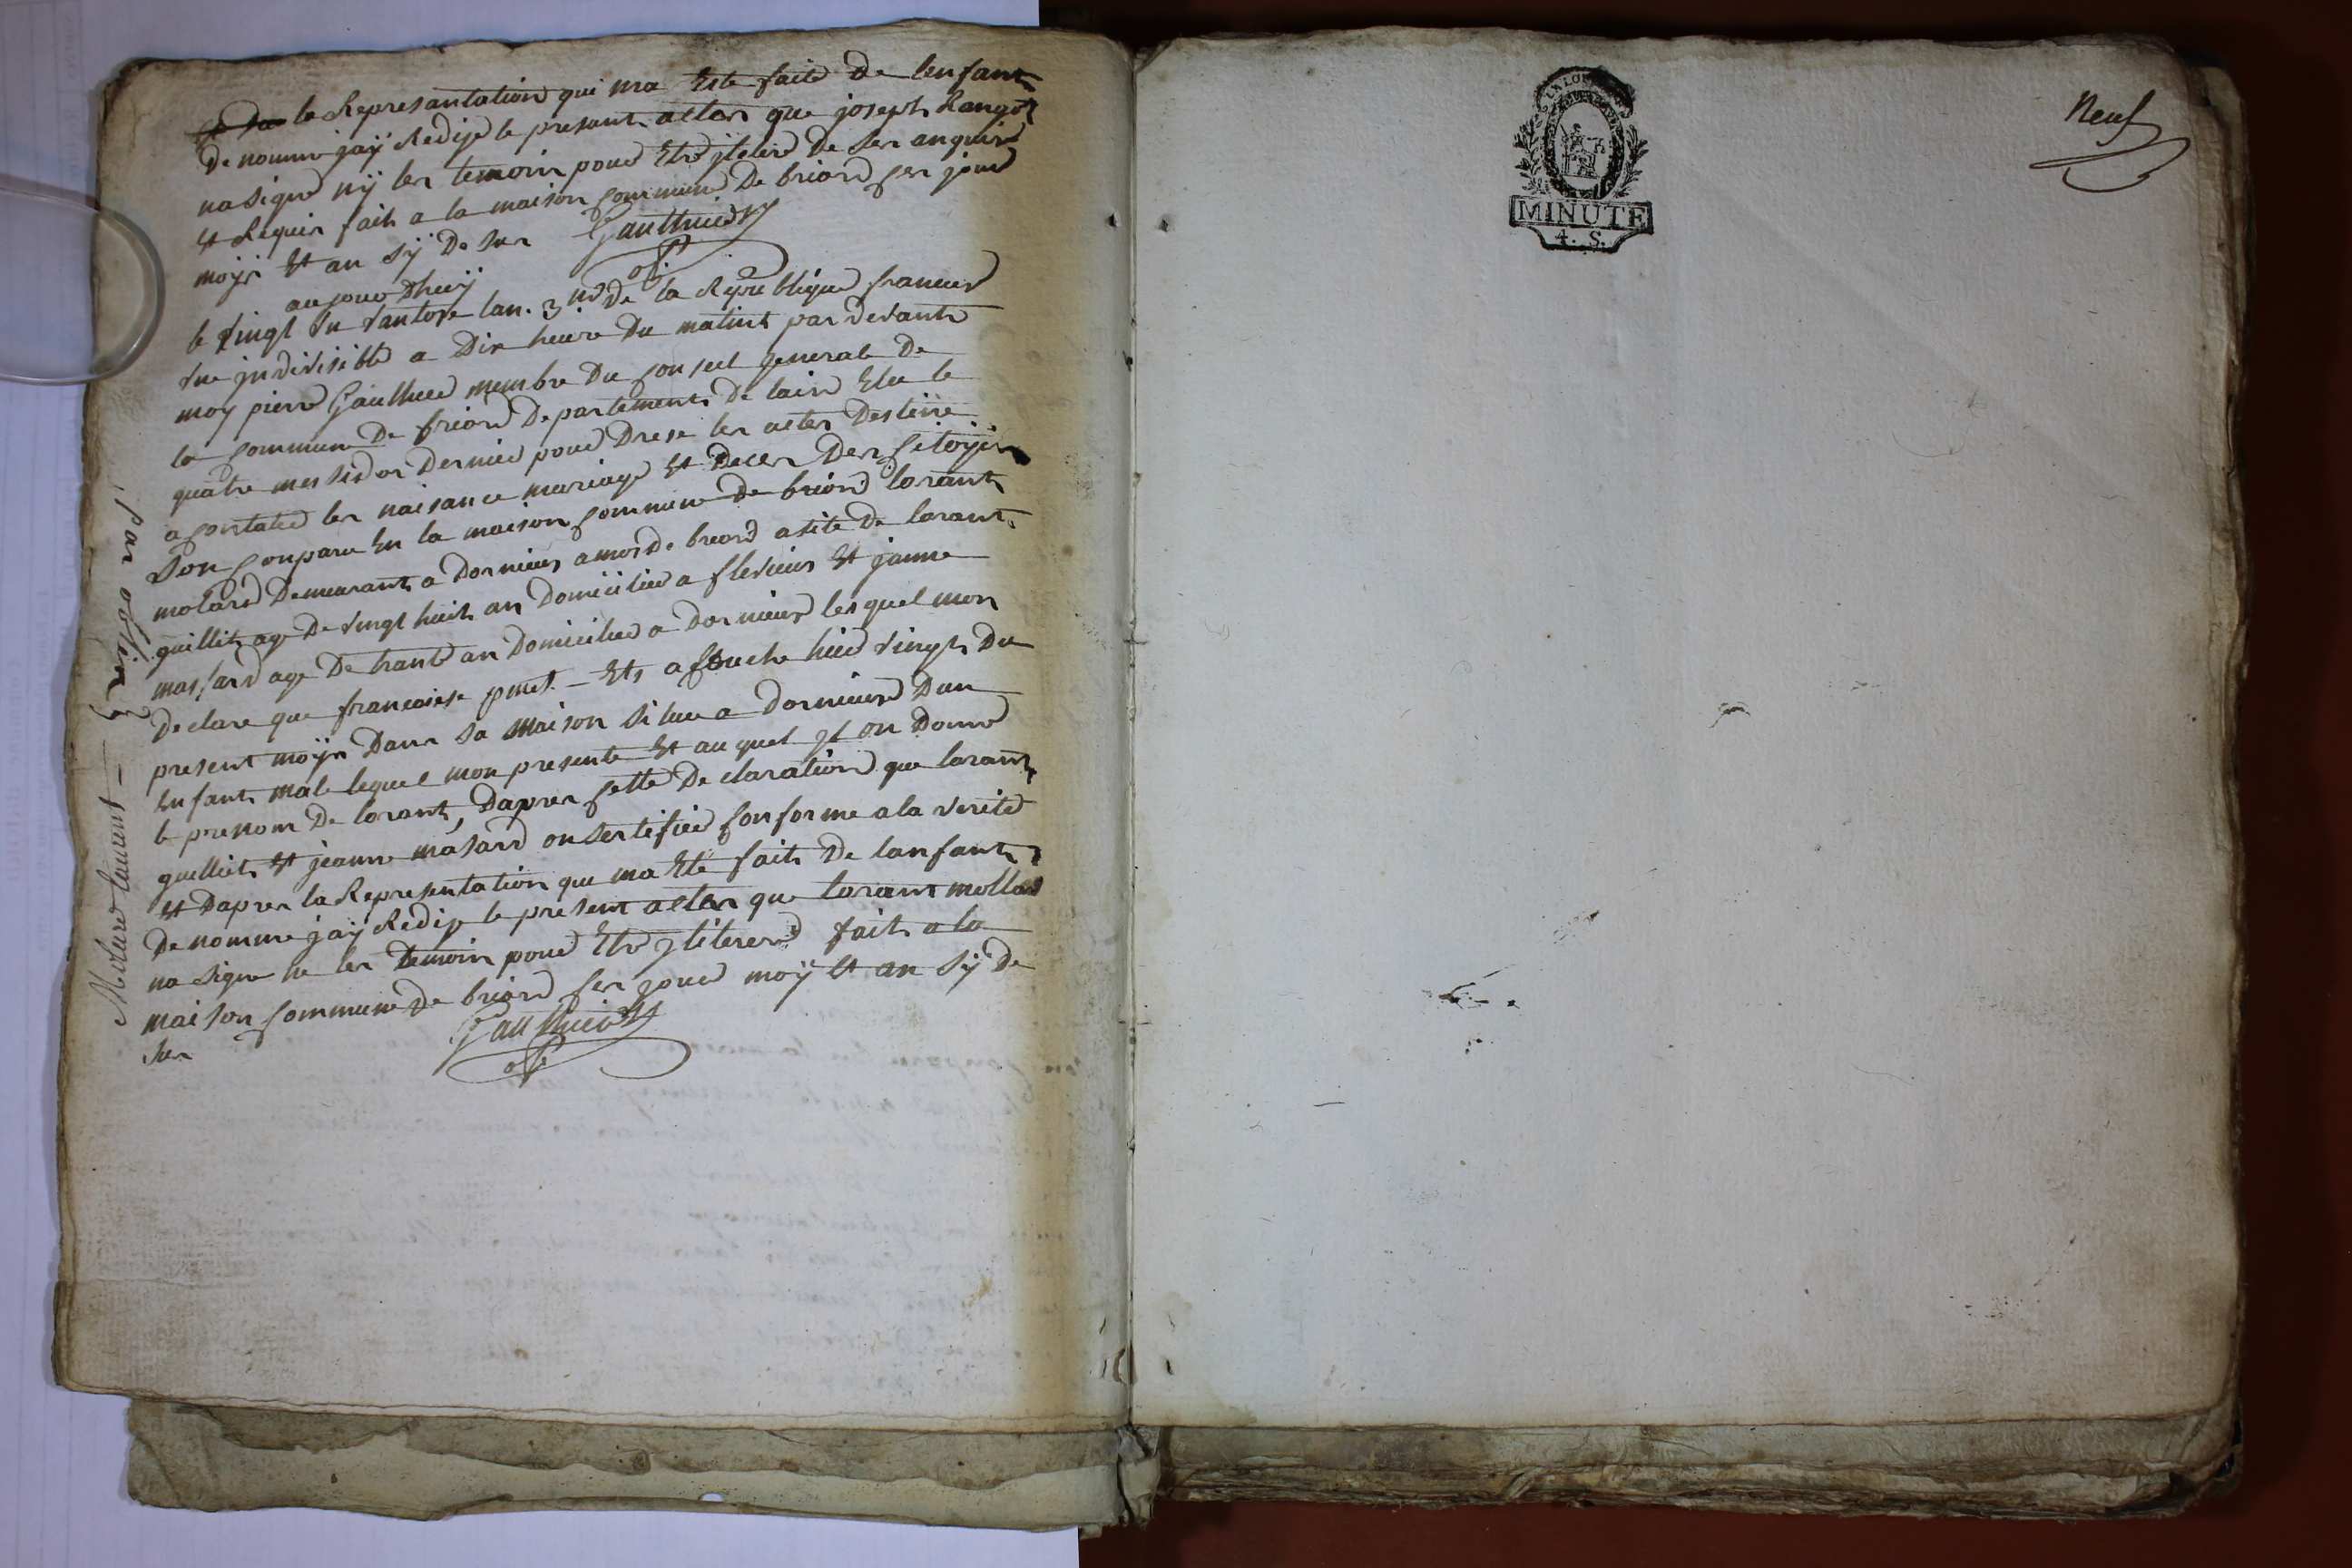 la Represantation qui ma Este faite De lenfant
De nomme jaÿ Redije le present acter que joseph Rangot
na signe nÿ les temoin pour Etre De Ser anquis
Et Requis fait a la maison commune De briord ser jour
moÿs Et an sÿ De sur Gauthier
aujourdhuÿ
le vingt Un vantose lan. 3me De la Republique francoise
Une jndivisible a Dix heure Du matint par devant
moy pierre Gauthier membre Du conseil general De
la commune De briord Departement De lain Elu le
quatre messidor Dernier pour Drese les acter Destine
a contater les naisance mariage Et Deces Des sitoÿen
son conparu En la maison commune De briord lorant
molard Demeurant a Dornieux De briord asite De lorant
guillit age De vingt huit an Domicilier a flevieux Et janne
massard age De trante an Domicilier a Dornieux lesquel mon
Declare que francoise Et acouche hier vingt Du
present moÿs Dans sa maison situe a Dornieux Dun
Enfant male lequel mon presente Et au quel jl on Donne
le prenom De lorant, Dapres sette De claration que lorant
guilliet Et jeanne masard on sertifier conforme a la verite
Et Dapres la Representation que ma Ete fait De lanfant
De nomme jaÿ Redije le present acter que lorant mollard
na signe ne les temoin pour Etre fait a la
maison commune De briord ser jour moÿ Et an sÿ De
sur Gauthier
Molard laurent —
Neuf
MINUTE
4. S.